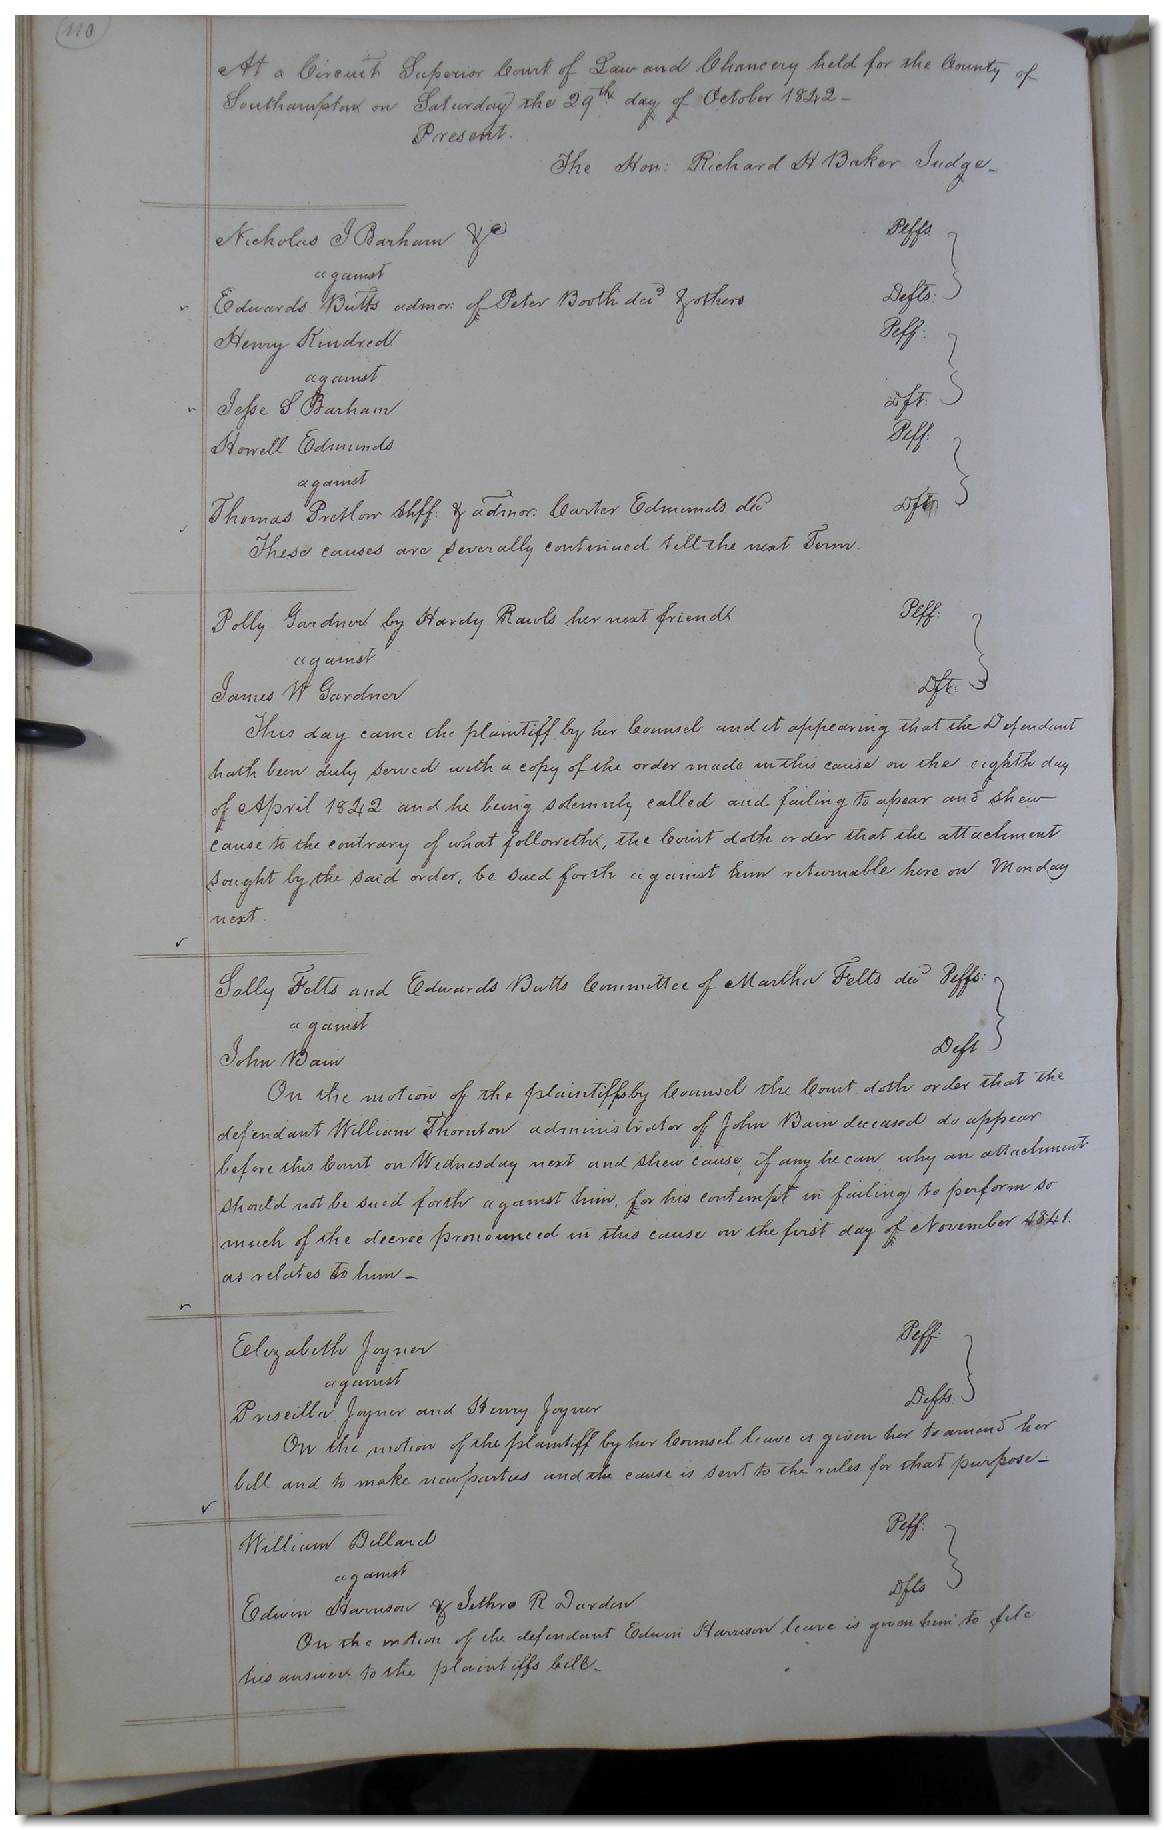 110
At a Circuit Superior Court of Law and Chancery held for the County of
Southampton on Saturday the 29th day of October 1842 -
Present.
The Hon: Richard H Baker Judge -
Nicholas J Barham &c Plffs.
against
Edwards Butts admor: of Peter Booth decd & others Defts:
Henry Kindred Plff:
against
Jesse S Barham Dft:
Howell Edmunds Plff:
against
Thomas Pretlow Shff: & admor: Carter Edmunds decd Dft
These causes are severally continued till the next Term.
Polly Gardner by Hardy Rawls her next friend Plff:
against
James W Gardner Dft:
This day came the plaintiff by her Counsel and it appearing that the Defendant
hath been duly served with a copy of the order made in this cause on the eighth day
of April 1842 and he being solemnly called and failing to apear and shew
cause to the contrary of what followeth, the Court doth order that the attachment
sought by the said order, be sued forth against him returnable here on Monday
next.
Sally Felts and Edwards Butts Committee of Martha Felts decd Plffs:
against
John Bain Deft
On the motion of the plaintiffs by Counsel the Court doth order that the
defendant William Thornton administrator of John Bain deceased do appear
before this Court on Wednesday next and shew cause, if any he can, why an attachment
should not be sued forth against him, for his contempt in failing to perform so
much of the decree pronounced in this cause on the first day of November 1841.
as relates to him -
Elizabeth Joyner Plff:
against
Priscilla Joyner and Henry Joyner Defts.
On the motion of the plaintiff by her Counsel leave is given her to amend her
bill and to make new parties and the cause is sent to the rules for that purpose -
William Dillard Plff:
against
Edwin Harrison & Jethro R Darden Dfts
On the motion of the defendant Edwin Harrison leave is given him to file
his answer to the plaintiffs bill -